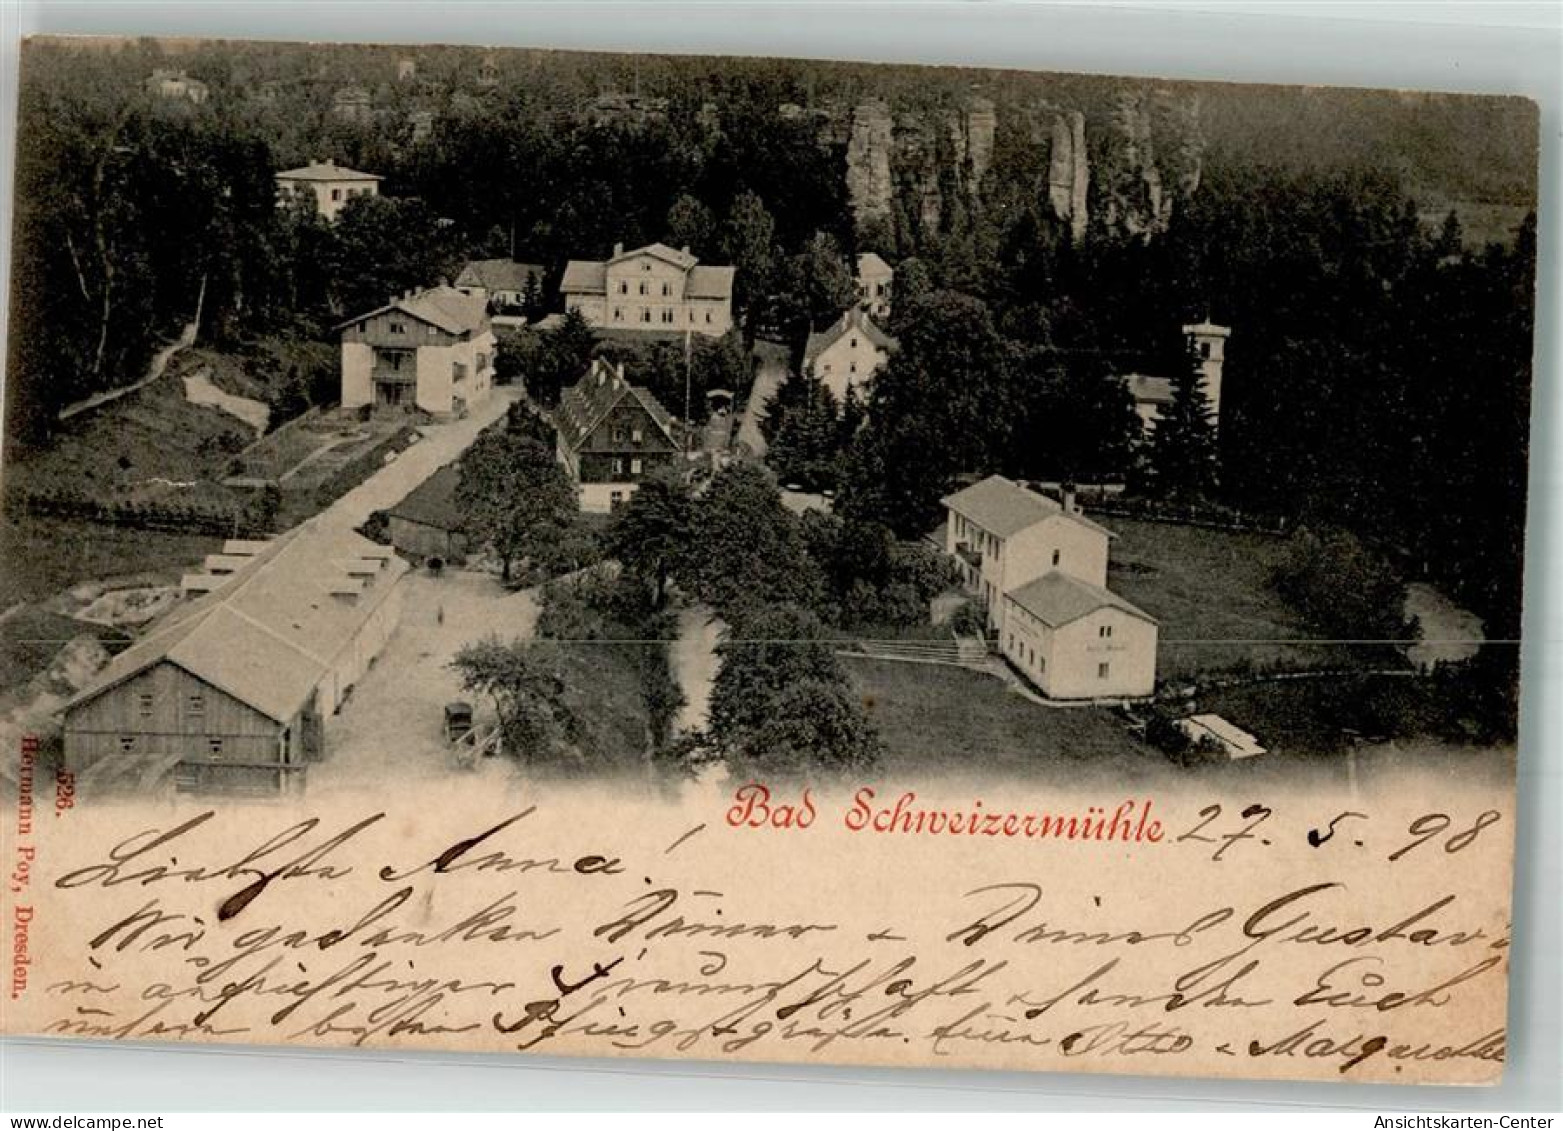 Bad Schweizermühle 27. 5. 98
Liebste Anna!
Wir gedenken Deiner + Deines Gustav's
in aufrichtiger Freundschaft + senden Euch
unsere besten Pfingstgrüße. Eure Otto + Margarethe
526.
Hermann Poy, Dresden.
www.delcampe.net
Ansichtskarten-Center